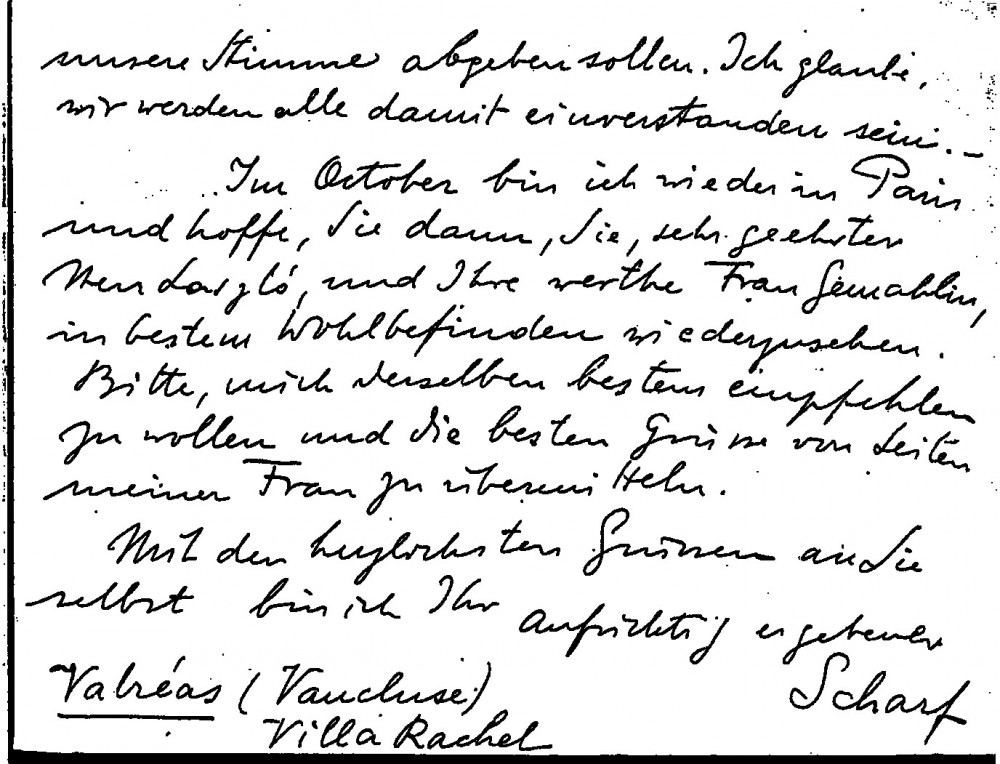 unsere Stimme abgeben sollen. Ich glaube,
wir werden alle damit einverstanden sein. –
Im October bin ich wieder in Paris
und hoffe, Sie dann, Sie, sehr geehrter
Herr László, und Ihre werthe Frau Gemahlin,
in bestem Wohlbefinden wiederzusehen.
Bitte, mich derselben bestens empfehlen
zu wollen und die besten Grüsse von Seiten
meiner Frau zu übermitteln.
Mit den herzlichsten Grüssen an Sie
selbst bin ich Ihr aufrichtig ergebener
Scharf
Valréas (Vaucluse)
Villa Rachel